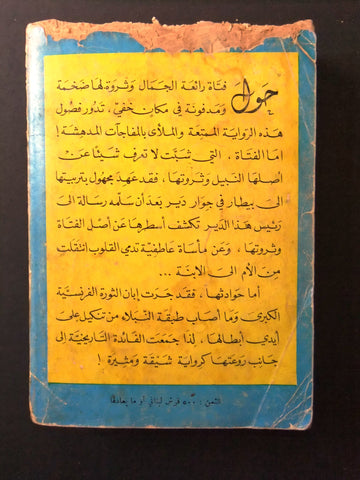 حول فتاة رائعة الجمال وثروة لها ضخمة
ومدفونة في مكان خفي، تدور فصول
هذه الرواية الممتعة والملأى بالمفاجآت المدهشة!
اما الفتاة، التي شبّت لا تعرف شيئا عن
اصلها النبيل وثروتها، فقد عهد مجهول بتربيتها
الى بيطار في جوار دير بعد أن سلّمه رسالة الى
رئيس هذا الدير تكشف أسطرها عن أصل الفتاة
وثروتها، وعن مأساة عاطفية تدمي القلوب انتقلت
من الأم الى الابنة ...
أما حوادثها، فقد جرت إبان الثورة الفرنسية
الكبرى وما أصاب طبقة النبلاء من تنكيل على
أيدي أبطالها، لذا جمعت الفائدة التاريخية إلى
جانب روعتها كرواية شيقة ومثيرة!
الثمن: قرش لبناني أو ما يعادلها